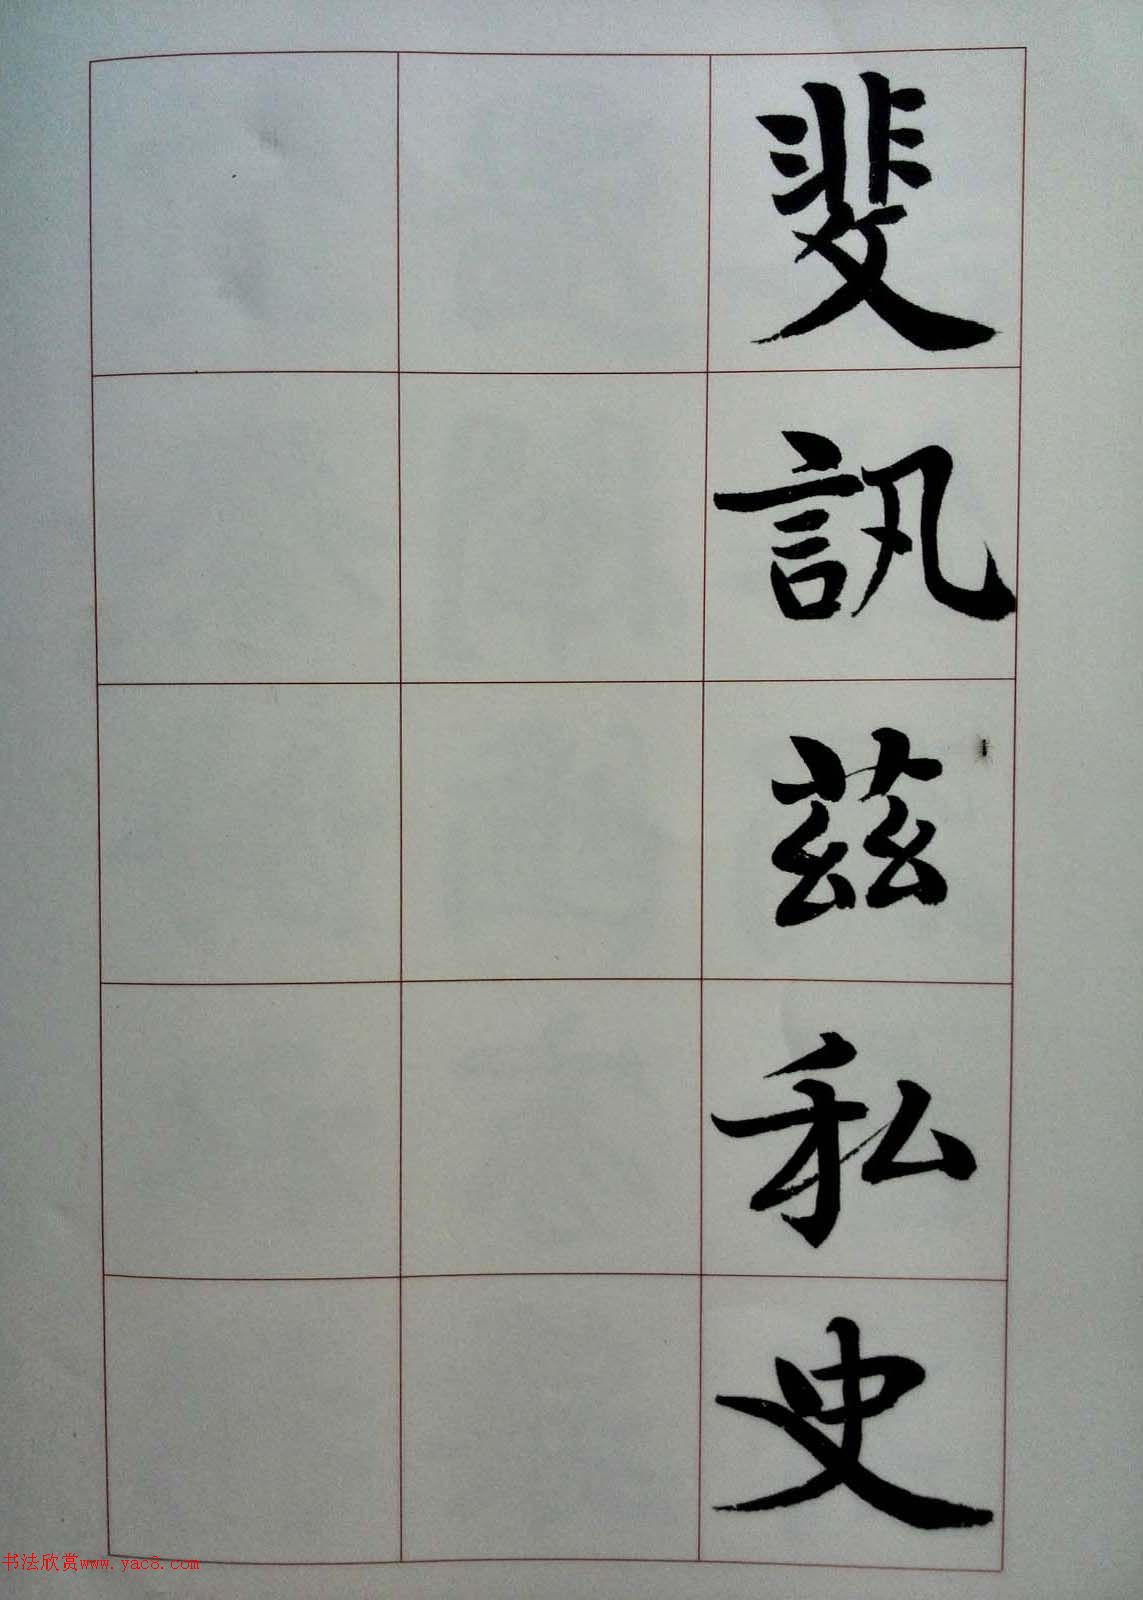 斐訊茲私史
书法欣赏www.yac8.com